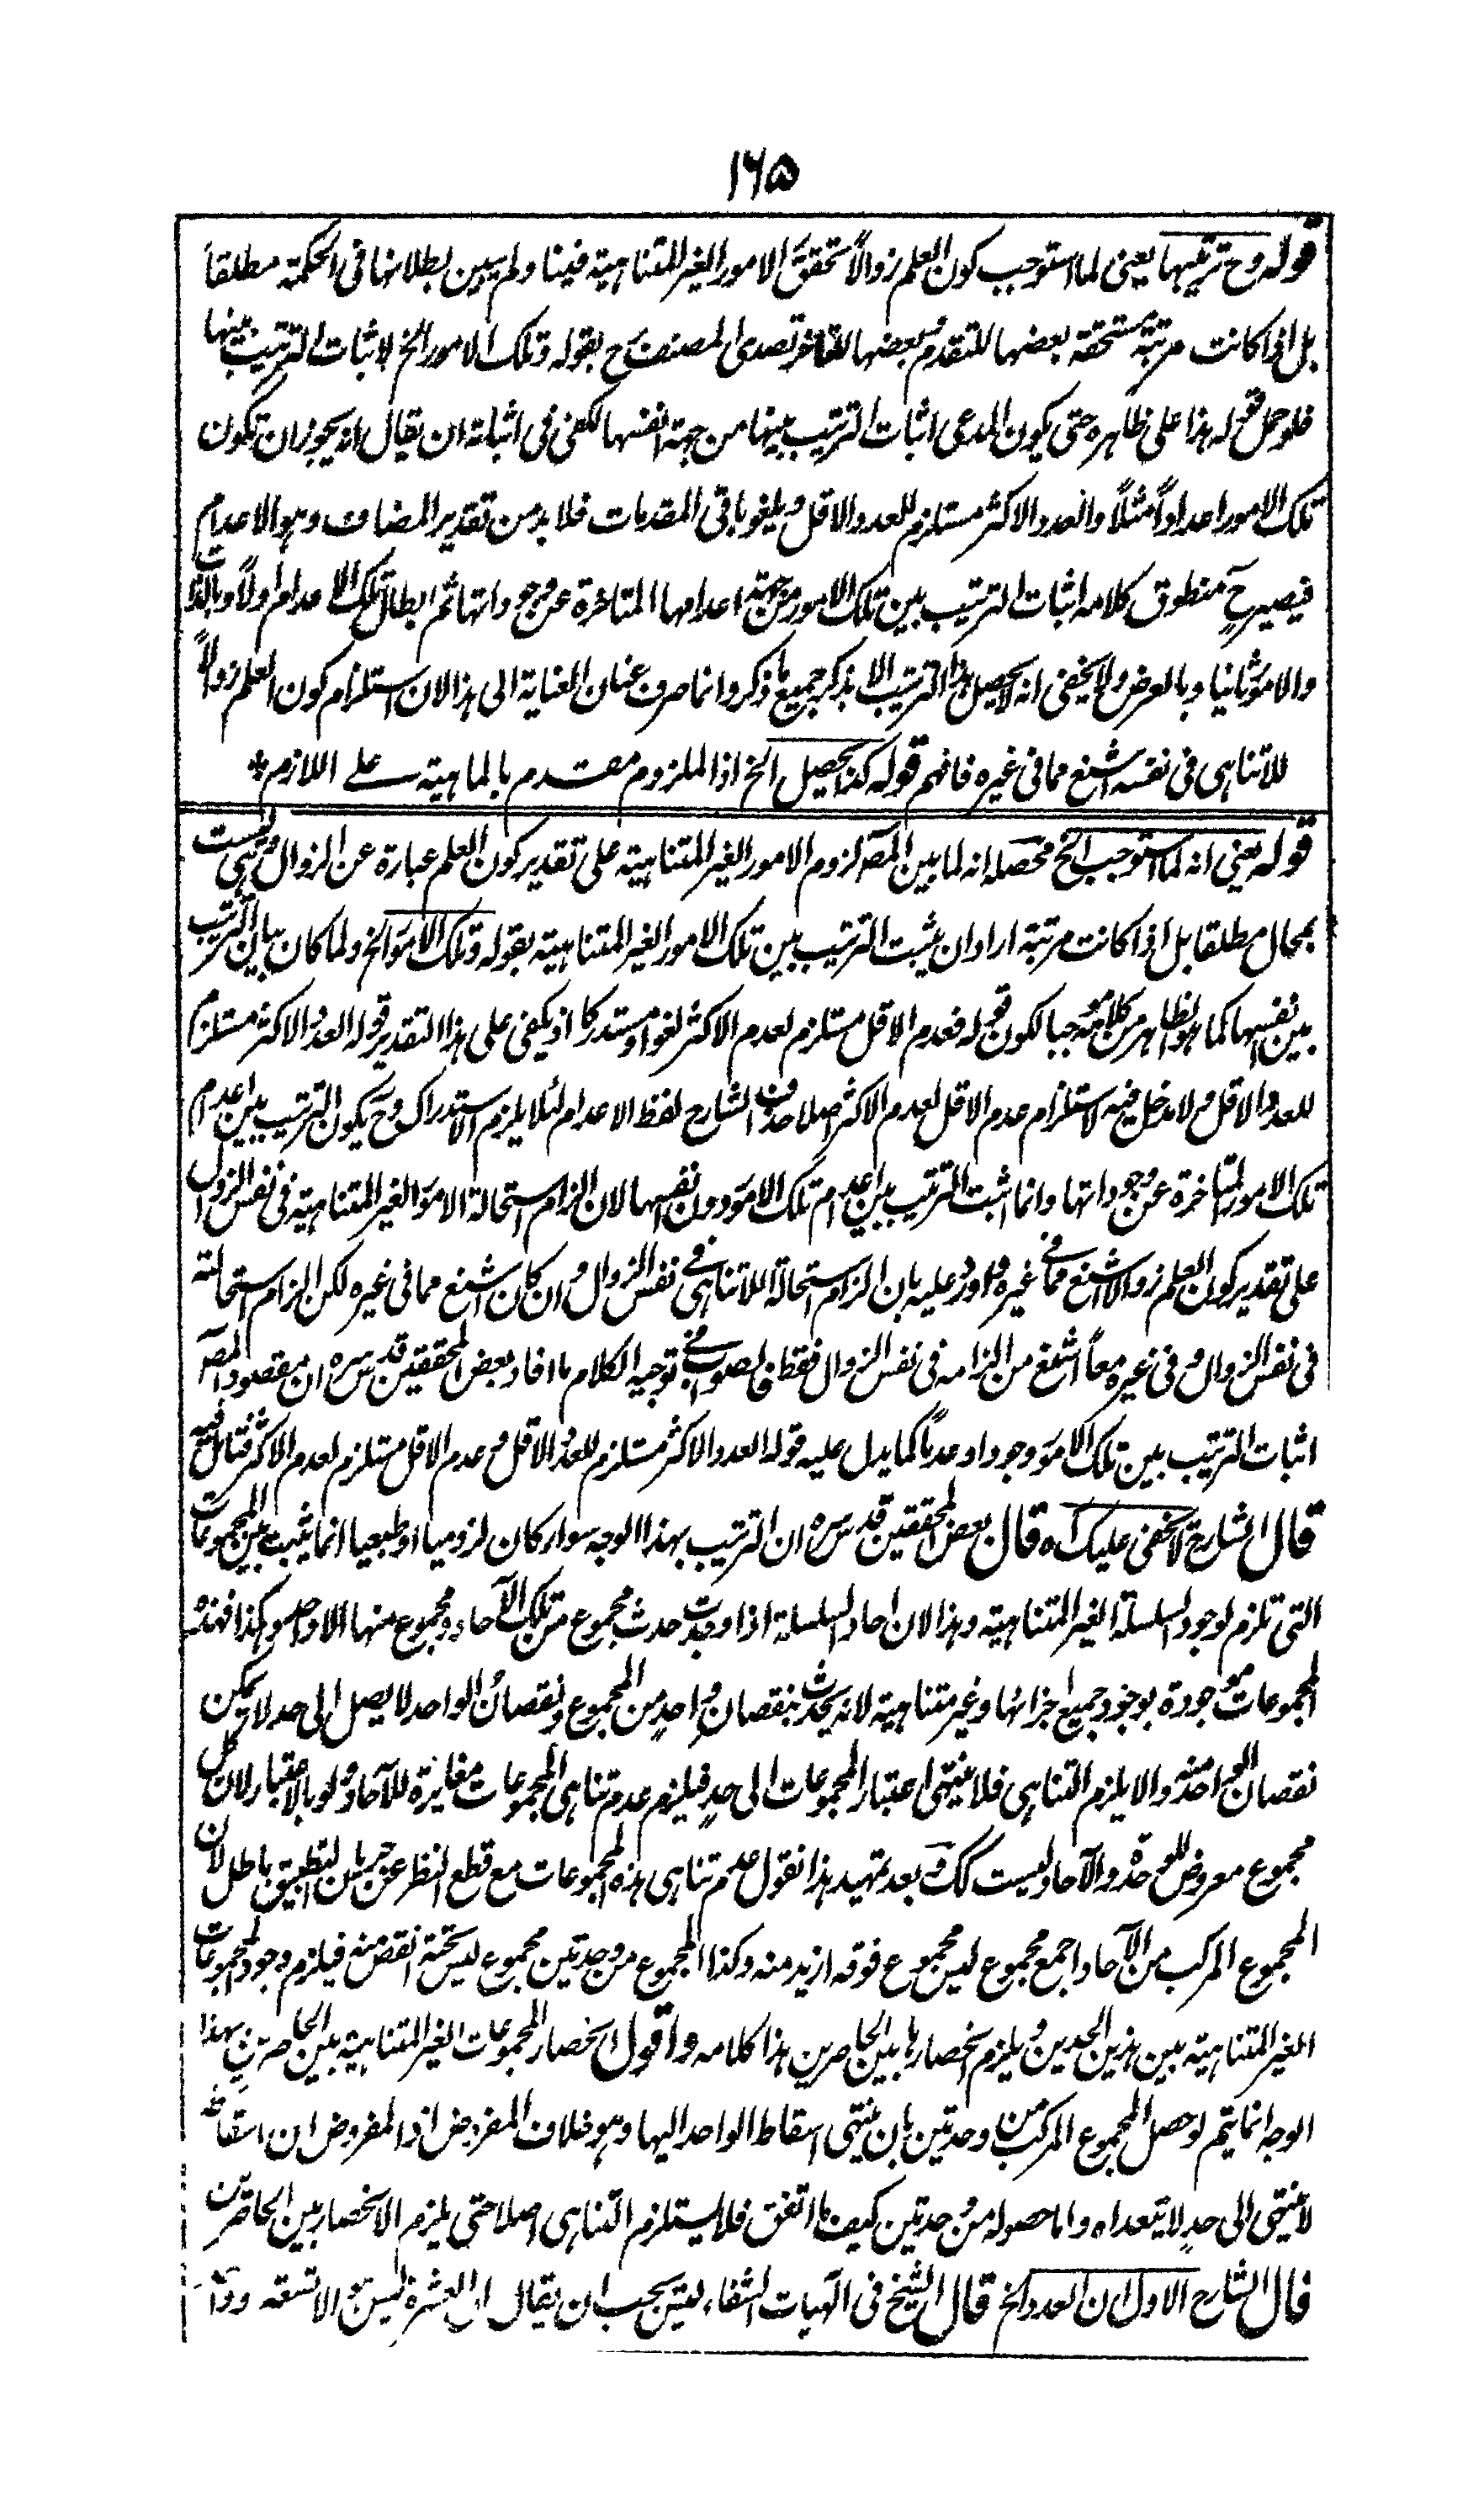 ١٦٥
قوله وح ترتيبها يعنى لما استوجب كون العلم زوالاً تحقق الامور الغير المتناهية فينا ولم يبين بطلانها فى الحكمة مطلقا
بل اذا كانت مرتبة مستحقة بعضها للتقدم وبعضها للتاخر تصدى المصنف ح بقوله وتلك الامور الخ لاثبات الترتيب بينها
فلو حمل قوله هذا على ظاهره حتى يكون المدعى اثبات الترتيب بينها من جهة انفسها لكفى فى اثباته ان يقال انه يجوز ان تكون
تلك الامور اعداداً مثلاً والعدد الاكثر مستلزم للعدد الاقل ويلغو باقى المقدمات فلا بد من تقدير المضاف وهو الاعدام
فيصير ح منطوق كلامه اثبات الترتيب بين تلك الامور من جهة اعدامها المتاخرة عن وجوداتها ثم ابطال تلك الاعدام اولاً وبالذات
والامور ثانيا وبالعرض ولا يخفى انه لا يحصل هذا الترتيب الا بذكر جميع ما ذكر وانما صرف عنان العناية الى هذا لان استلزام كون العلم زوالاً
للاتناهى فى نفسه اشنع مما فى غيره فافهم قوله كذا يحصل الخ اذ الملزوم مقدم بالماهية على اللازم
قوله يعنى انه لما استوجب الخ محصله انه لما بين المصـ لزوم الامور الغير المتناهية على تقدير كون العلم عبارة عن الزوال وهى ليست
بمحال مطلقا بل اذا كانت مرتبة اراد ان يثبت الترتيب بين تلك الامور الغير المتناهية بقوله وتلك الامور الخ ولما كان بيان الترتيب
بين نفسها كما هو الظاهر من كلامه موجبا لكون قوله فعدم الاقل مستلزم لعدم الاكثر لغوا ومستدركا اذ يكفى على هذا التقدير قوله العدد الاكثر مستلزم
للعدد الاقل ولا مدخل فيه لاستلزام عدم الاقل لعدم الاكثر اصلا حذف الشارح لفظ الاعدام لئلا يلزم الاستدراك وح يكون الترتيب بين اعدام
تلك الامور المتاخرة عن وجوداتها وانما اثبت الترتيب بين اعدام تلك الامور دون نفسها لان الزام استحالة الامور الغير المتناهية فى نفس الزوال
على تقدير كون العلم زوالا اشنع مما فى غيره واورد عليه بان الزام استحالة اللاتناهى فى نفس الزوال وان كان اشنع مما فى غيره لكن الزام استحالته
فى نفس الزوال وفى غيره معاً اشنع من الزامه فى نفس الزوال فقط فالصواب فى توجيه الكلام ما افاد بعض المحققين قدس سره ان مقصود المصـ
اثبات الترتيب بين تلك الامور وجودا وعدماً كما يدل عليه قوله العدد الاكثر مستلزم للعدد الاقل وعدم الاقل مستلزم لعدم الاكثر فتامل فيه
قال الشارح لا يخفى عليك اه قال بعض المحققين قدس سره ان الترتيب بهذا الوجه سواء كان لزوميا او طبعيا انما يثبت بين المجموعات
التى تلزم لوجود السلسلة الغير المتناهية وهذا لان احاد السلسلة اذا وجدت حدث مجموع من تلك الآحاد ومجموع منها الا واحد وهكذا فهذه
المجموعات موجودة بوجود جميع اجزائها وغير متناهية لانه يحدث بنقصان واحدٍ من المجموع ونقصان الواحد لا يصل الى حد لا يمكن
نقصان الواحد منه والا يلزم التناهى فلا ينتهى اعتبار المجموعات الى حدٍ فيلزم عدم تناهى المجموعات مغايرة للآحاد ولو بالاعتبار لان كل
مجموع معروض للوحدة والآحاد ليست كك وبعد تمهيد هذا نقول عدم تناهى هذه المجموعات مع قطع النظر عن جريان التطبيق باطل لان
المجموع المركب من الآحاد اجمع مجموع ليس مجموع فوقه ازيد منه وكذا المجموع من وحدتين مجموع ليس تحته انقص منه فيلزم وجود المجموعات
الغير المتناهية بين هذين الحدين ويلزم انحصارها بين الحاصرين هذا كلامه واقول انحصار المجموعات الغير المتناهية بين الحاصرين بهذا
الوجه انما يتم لو حصل المجموع المركب من وحدتين بان ينتهى اسقاط الواحد اليها وهو خلاف المفروض اذ المفروض ان اسقاطه
لا ينتهى الى حدٍ لا يتعداه واما حصوله من وحدتين كيف ما اتفق فلا يستلزم التناهى اصلا حتى يلزم الانحصار بين الحاصرين
قال الشارح الاول ان العدد الخ قال الشيخ فى الهيات الشفاء ليس يجب ان يقال ان العشرة ليس الا تسعة و